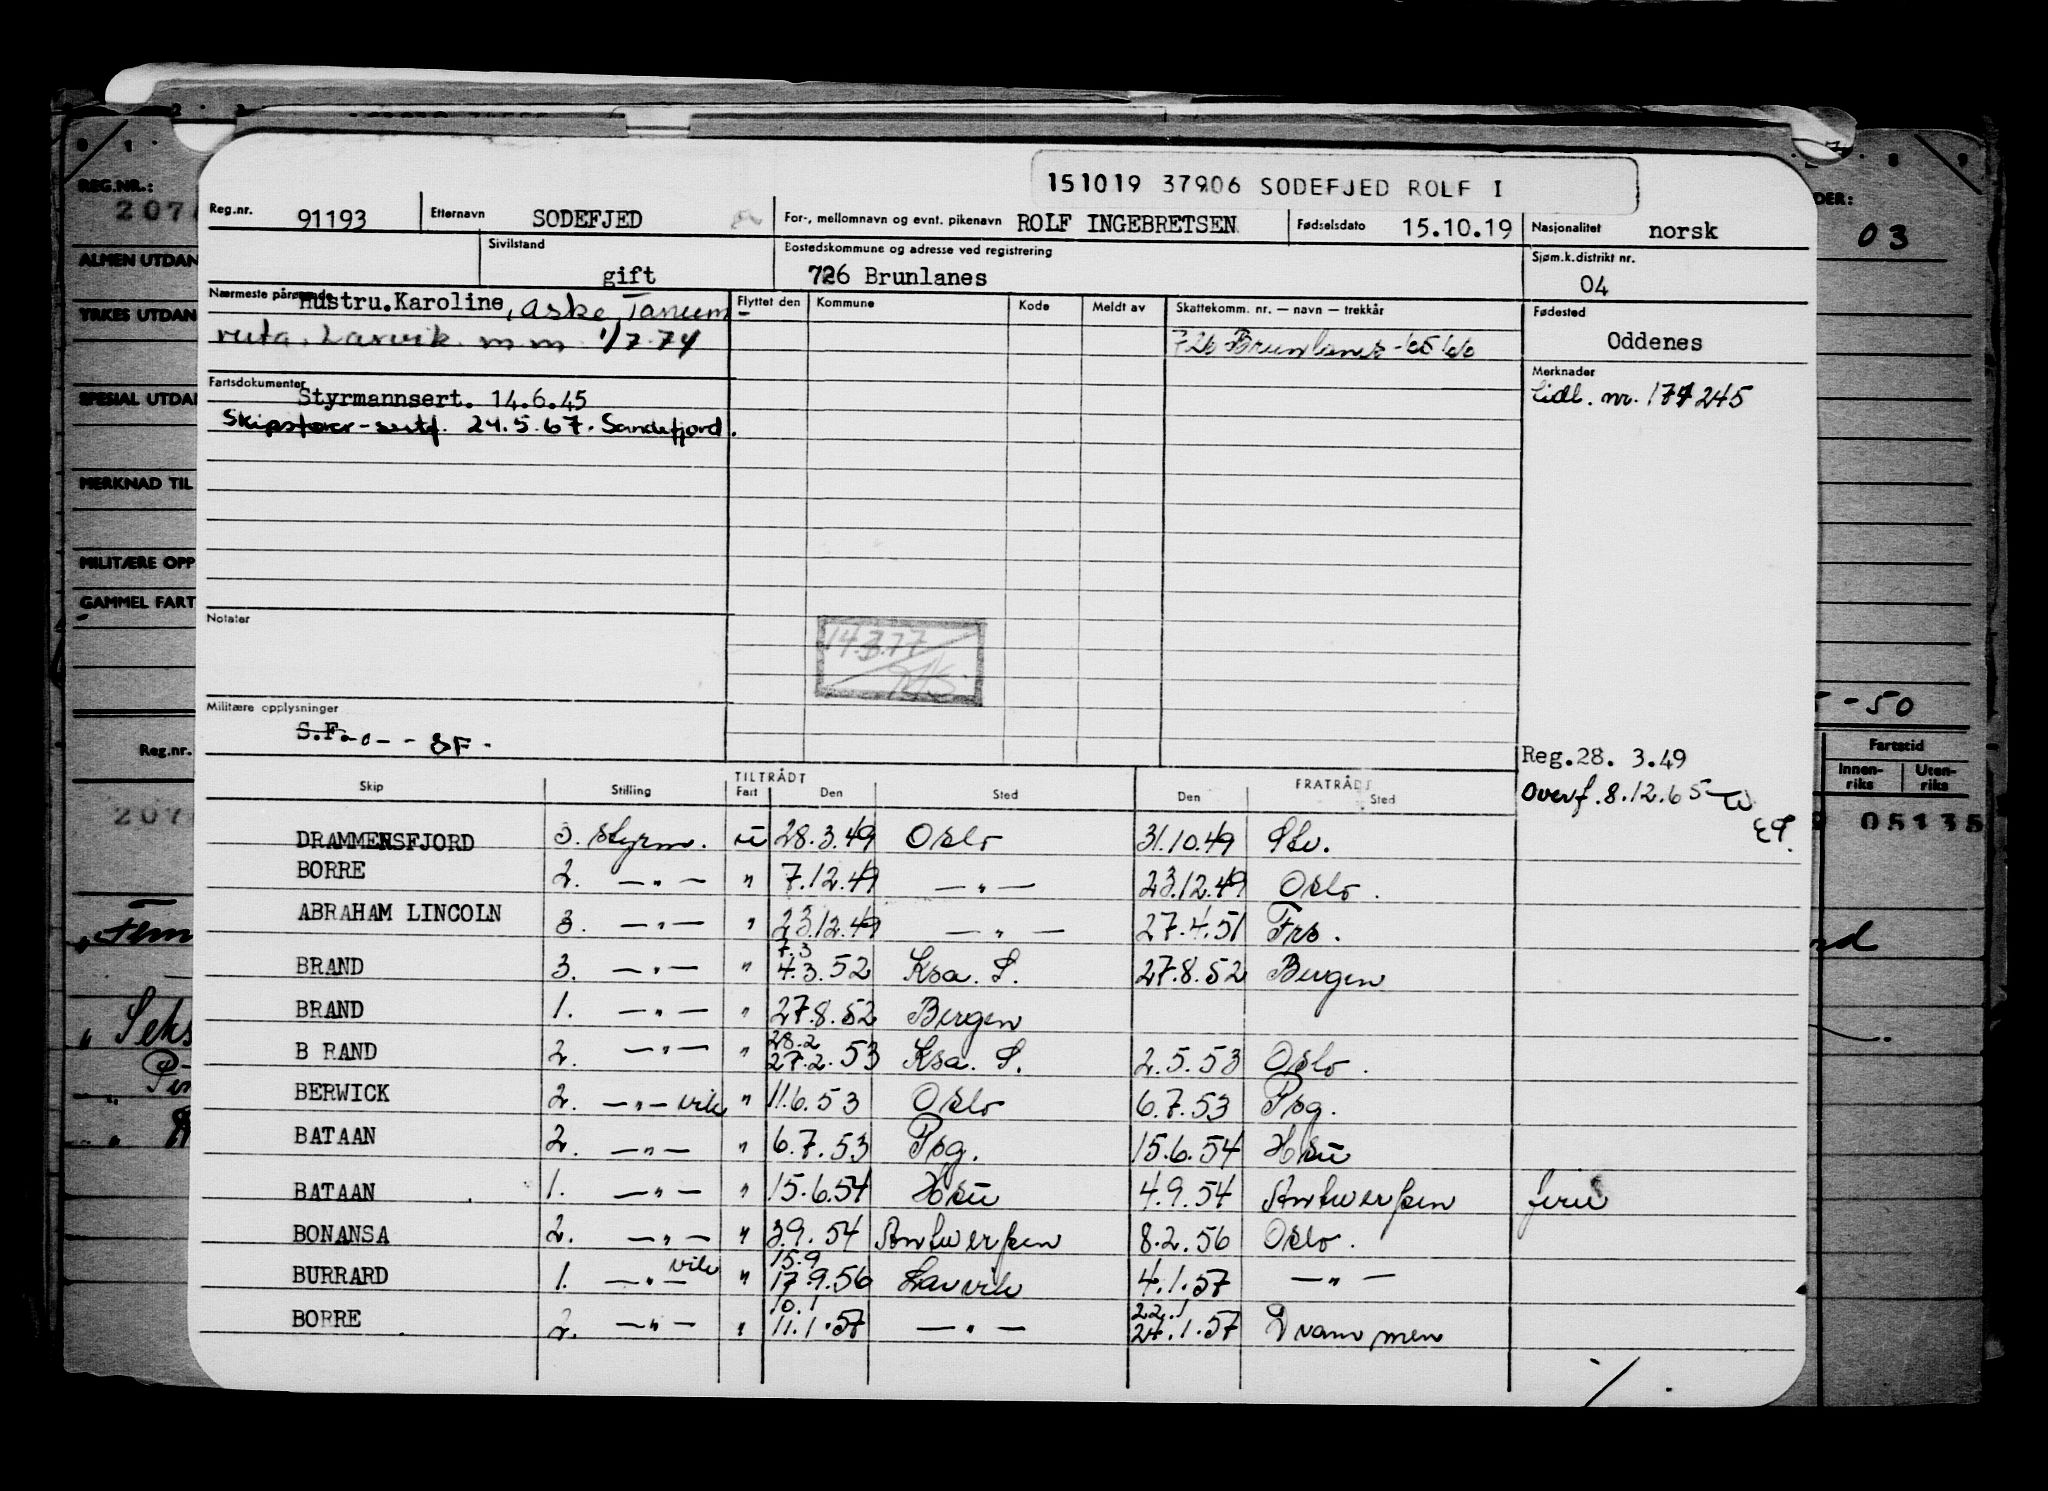 151019 37906 SODEFJED ROLF I
Reg.nr. 91193 Etternavn SODEFJED For-, mellomnavn og evnt. pikenavn ROLF INGEBRETSEN Fødselsdato 15.10.19 Nasjonalitet norsk
Sivilstand gift Bostedskommune og adresse ved registrering 726 Brunlanes Sjøm.k.distrikt nr. 04
Nærmeste pårørende Hustru.Karoline, Aske, Tanum- Flyttet den Kommune Kode Meldt av Skattekomm. nr. — navn — trekkår Fødested Oddenes
ruta. Larvik m m 1/7.74 726 Brunlanes -65 66
Fartsdokumenter Styrmannsert. 14.6.45 Merknader Lidl. nr. 174245
Skipsfører-sertf. 24.5.67. Sandefjord.
Notater
14.3.77
Militære opplysninger
S.F. -o- - SF.
Reg.28. 3.49
Overf. 8.12.65
Skip Stilling TILTRÅDT Fart Den Sted FRATRÅDT Den Sted
DRAMMENSFJORD 3. Styrm. u 28.3.49 Oslo 31.10.49 Stv.
BORRE 2. —"— " 7.12.49 —"— 23.12.49 Oslo.
ABRAHAM LINCOLN 3. —"— " 23.12.49 —"— 27.4.51 Frs.
7.3
BRAND 3. —"— " 4.3.52 Ksa. S. 27.8.52 Bergen
BRAND 1. —"— " 27.8.52 Bergen
28.2
B RAND 2. —"— " 27.2.53 Ksa. S. 2.5.53 Oslo.
BERWICK 2. —"— vik " 11.6.53 Oslo 6.7.53 Psg.
BATAAN 2. —"— " 6.7.53 Psg. 15.6.54 Hsu
BATAAN 1. —"— " 15.6.54 Hsu 4.9.54 Antwerpen ferie
BONANSA 2. —"— " 3.9.54 Antwerpen 8.2.56 Oslo.
15.9
BURRARD 1. —"— vik " 17.9.56 Larvik 4.1.57 —"—
10.1 22.1
BORRE 2. —"— " 11.1.57 —"— 24.1.57 Drammen
REG.NR.:
207
ALMEN UTDAN
YRKES UTDAN
SPESIAL UTDA
MERKNAD TIL
MILITÆRE OPP
GAMMEL FART
Reg.nr.
207
DER:
03
-50
Fartstid
Innen-riks Uten-riks
05135